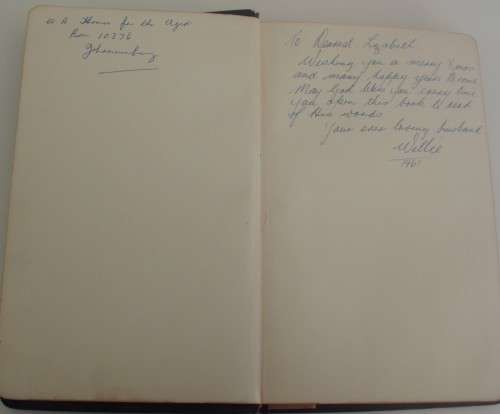 W A Homes for the Aged
Box 10376
Johannesburg
To Dearest Lizabeth.
Wishing you a merry Xmas
and many happy years to come
May God bless you every time
you open this book to read
of His words
Your ever loving husband
Willie
1961